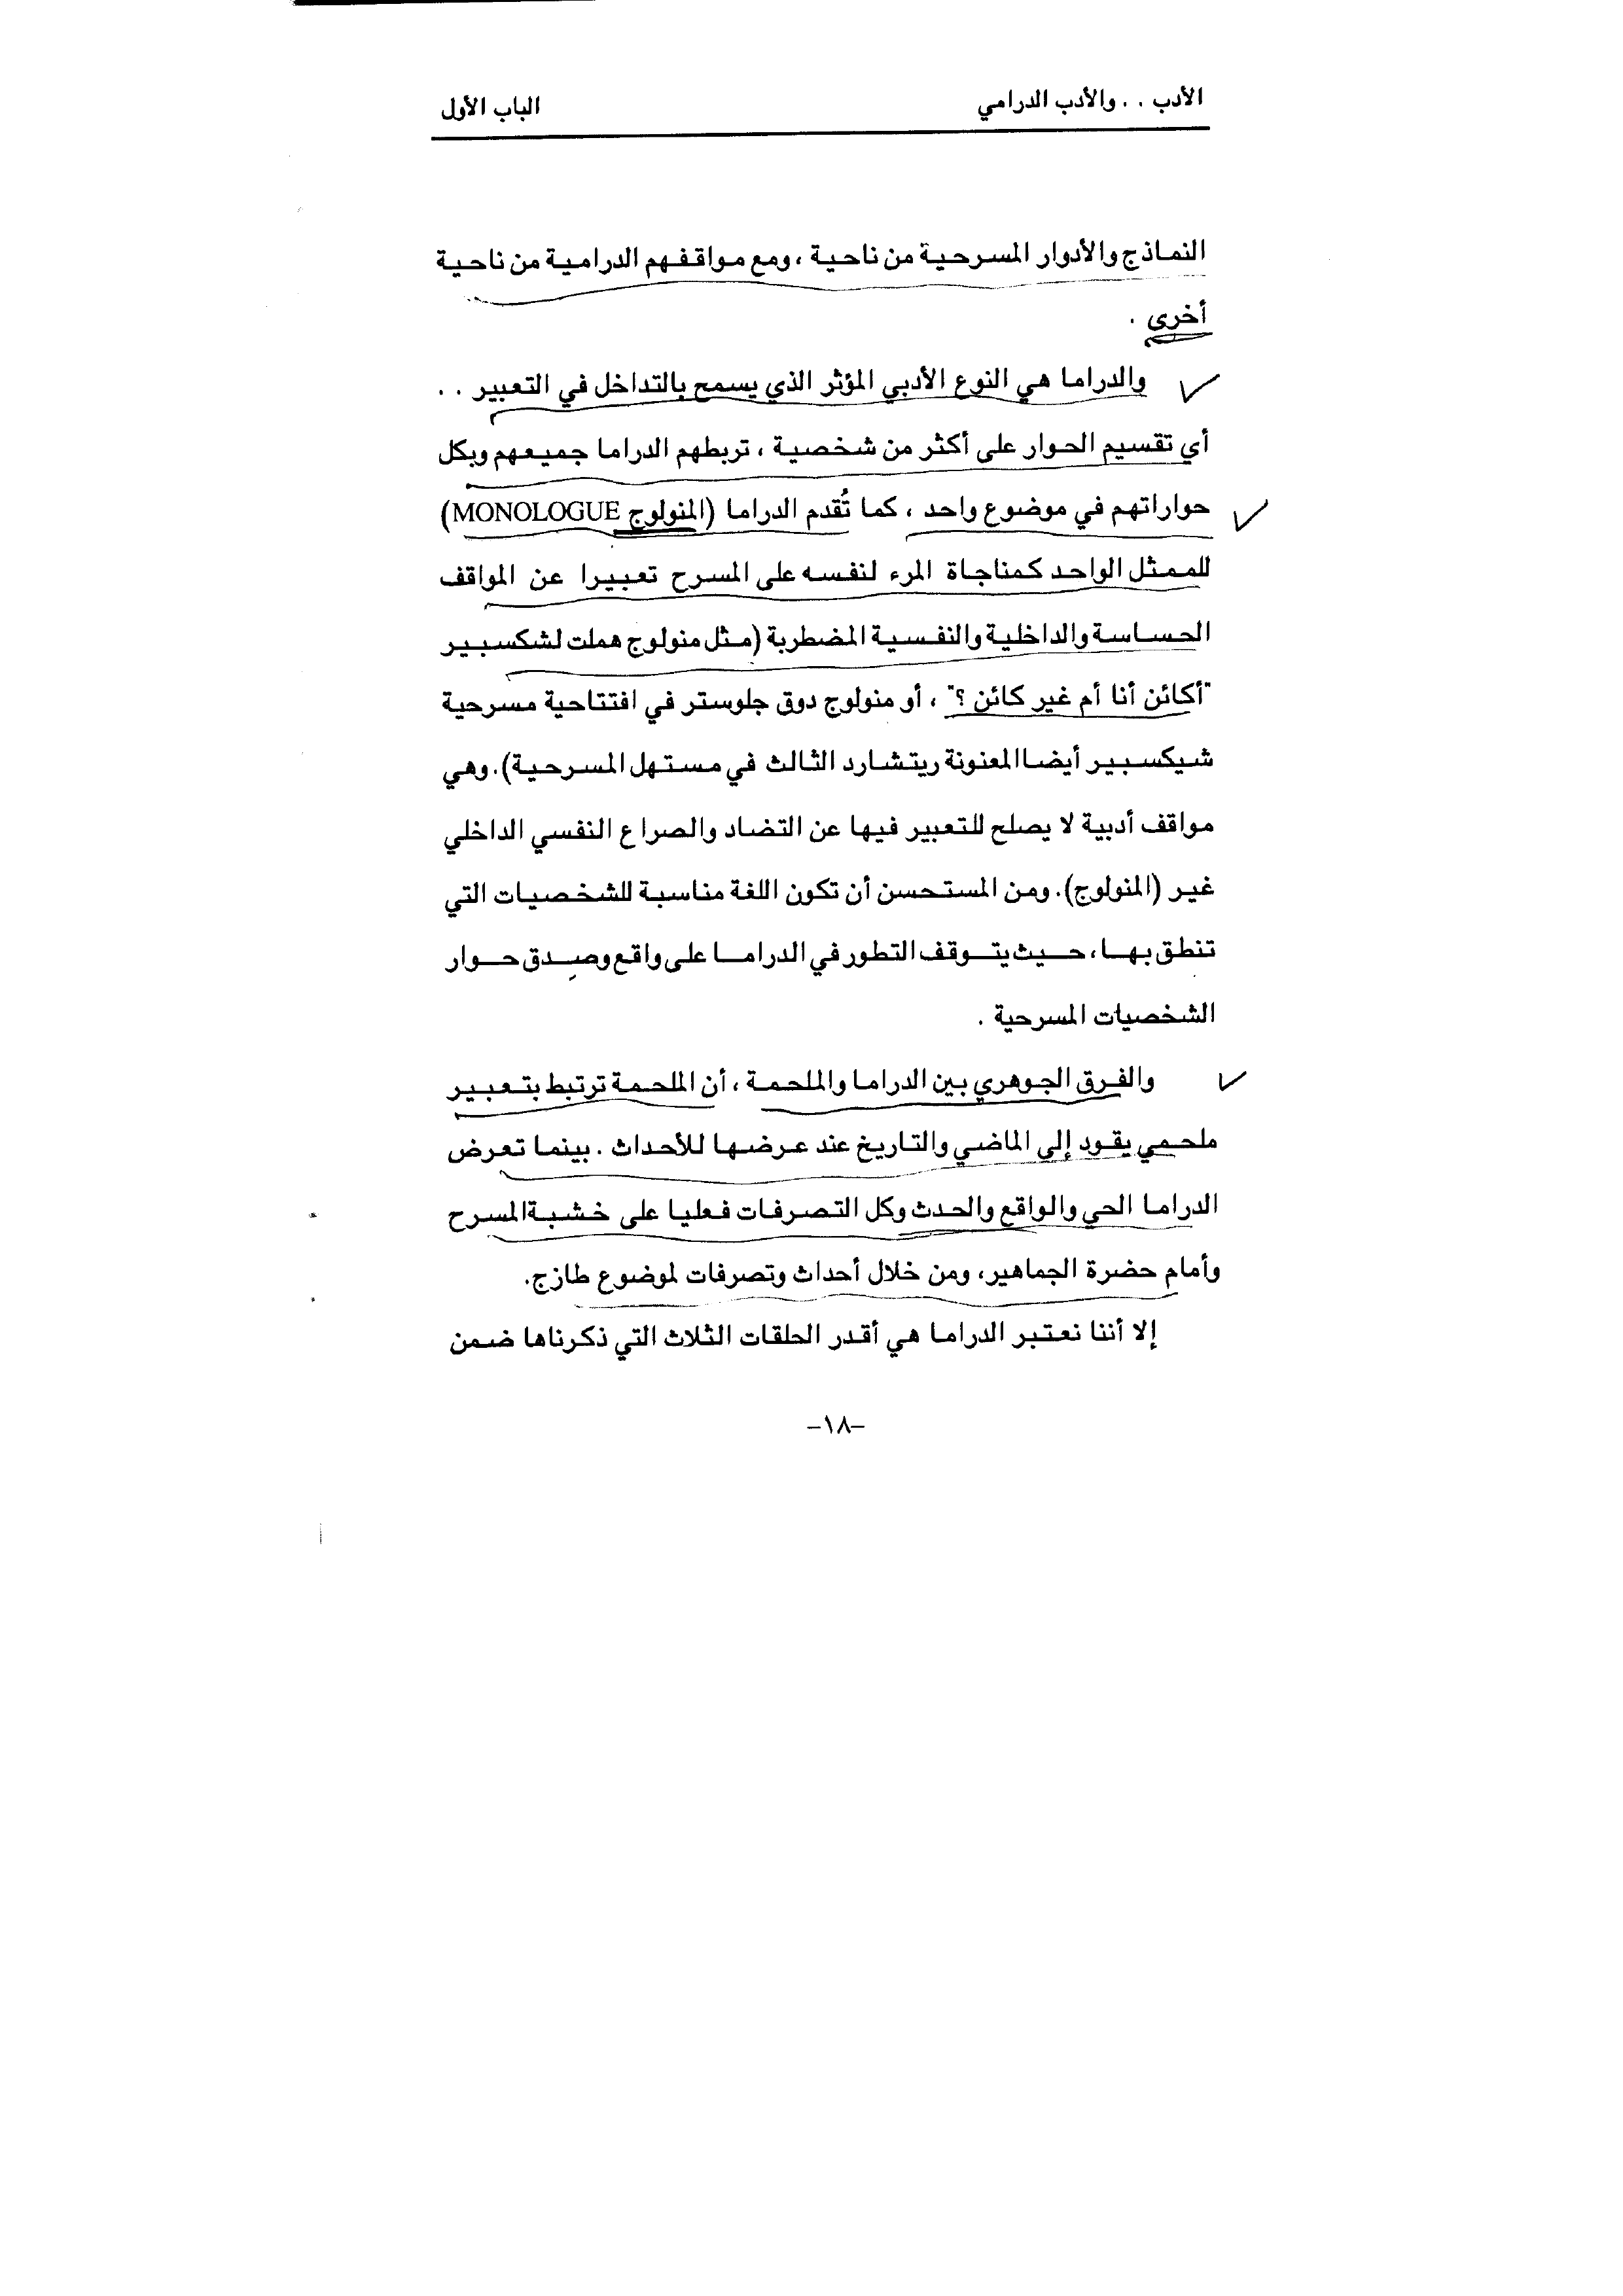 الأدب . . والأدب الدرامي
الباب الأول
النماذج والأدوار المسرحية من ناحية ، ومع مواقفهم الدرامية من ناحية
أخرى .
والدراما هي النوع الأدبي المؤثر الذي يسمح بالتداخل في التعبير . .
أي تقسيم الحوار على أكثر من شخصية ، تربطهم الدراما جميعهم وبكل
حواراتهم في موضوع واحد ، كما تُقدم الدراما (المنولوج MONOLOGUE)
للممثل الواحد كمناجاة المرء لنفسه على المسرح تعبيرا عن المواقف
الحساسة والداخلية والنفسية المضطربة (مثل منولوج هملت لشكسبير
"أكائن أنا أم غير كائن ؟" ، أو منولوج دوق جلوستر في افتتاحية مسرحية
شيكسبير أيضا المعنونة ريتشارد الثالث في مستهل المسرحية). وهي
مواقف أدبية لا يصلح للتعبير فيها عن التضاد والصراع النفسي الداخلي
غير (المنولوج). ومن المستحسن أن تكون اللغة مناسبة للشخصيات التي
تنطق بها، حيث يتوقف التطور في الدراما على واقع وصدق حوار
الشخصيات المسرحية .
والفرق الجوهري بين الدراما والملحمة ، أن الملحمة ترتبط بتعبير
ملحمي يقود إلى الماضي والتاريخ عند عرضها للأحداث . بينما تعرض
الدراما الحي والواقع والحدث وكل التصرفات فعليا على خشبة المسرح
وأمام حضرة الجماهير، ومن خلال أحداث وتصرفات لموضوع طازج.
إلا أننا نعتبر الدراما هي أقدر الحلقات الثلاث التي ذكرناها ضمن
–١٨–